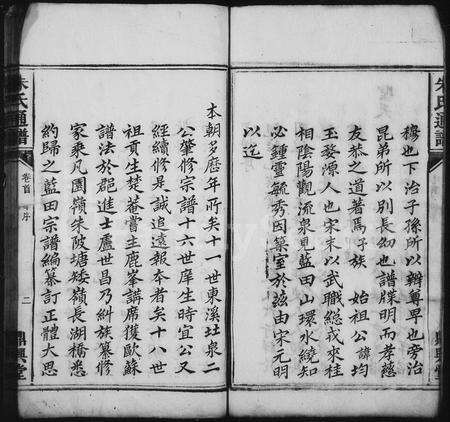 朱氏通譜
穆也下治子孫所以辨尊卑也旁治
昆弟所以別長幼也譜牒明而孝慈
友恭之道著焉予族 始祖公諱均
玉婺源人也宋末以武職總戎來桂
相陰陽觀流泉見藍田山環水繞知
必鍾靈毓秀因築室於茲由宋元明
以迄
鼎興堂
本朝多歷年所矣十一世東溪壯泉二
公肇修宗譜十六世庠生時宜公又
經續修是誠追遠報本者矣十八世
祖貢生楚菴嘗主鹿峯講席獲歐蘇
譜法於郡進士盧世昌乃糾族纂修
家乘凡園嶺朱陂塘矮嶺長湖橋悉
約歸之藍田宗譜編纂訂正體大思
朱氏通譜
卷首
序
二
鼎興堂